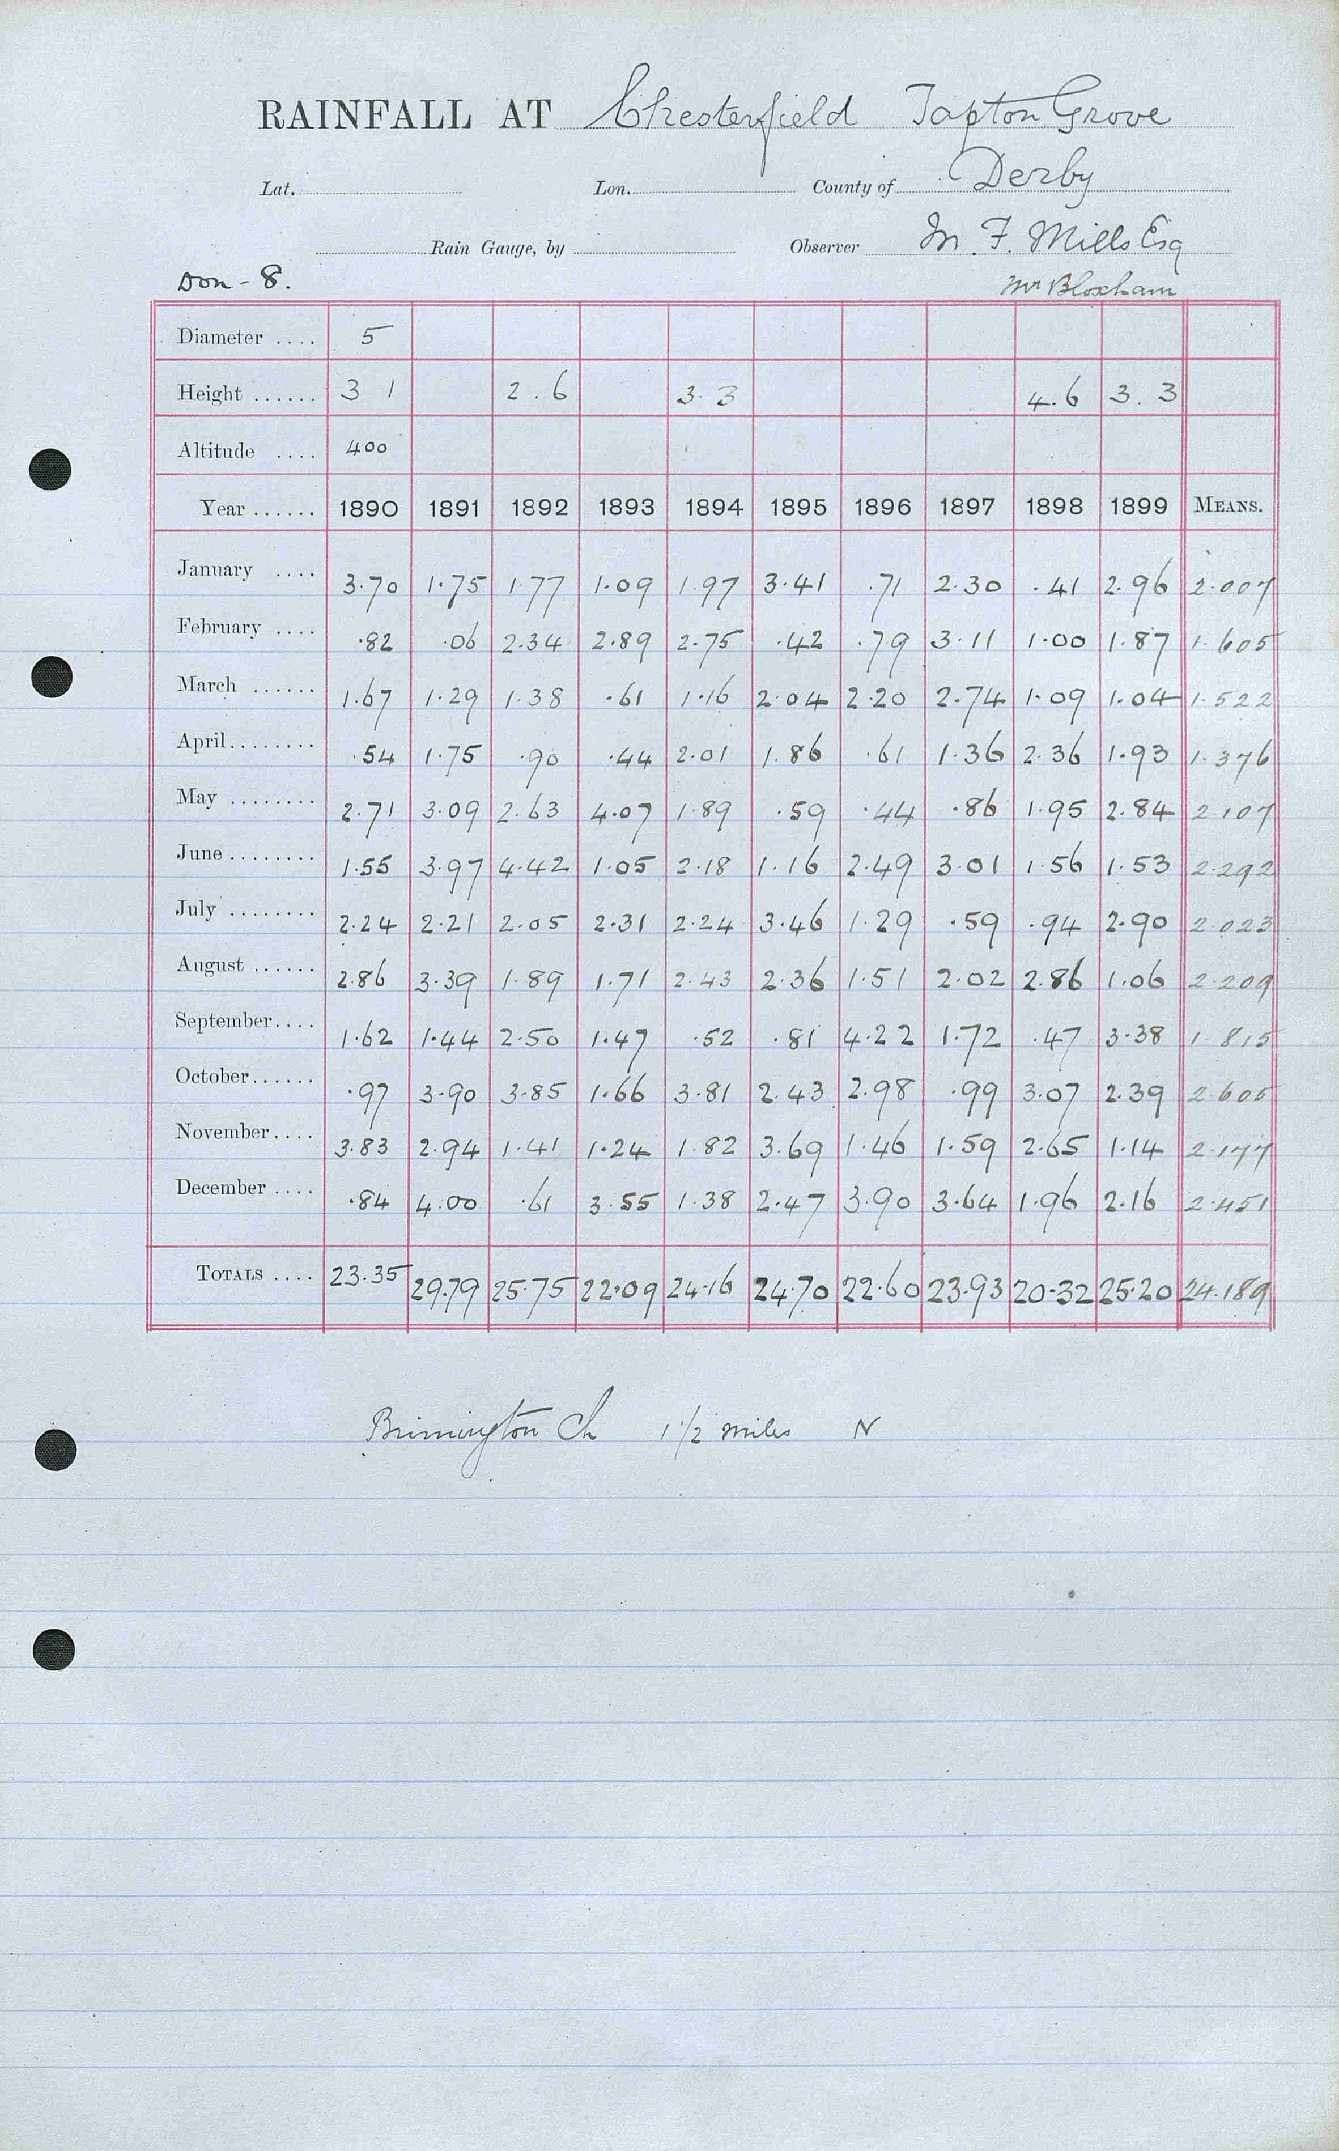 RAINFALL AT Chesterfield Tapton Grove
Lat. Lon. County of Derby
Rain Gauge, by Observer M. F. Mills Esq
Don - 8. Mr Bloxham
Diameter .... 5
Height ...... 3 1 2.6 3.3 4.6 3.3
Altitude .... 400
Year ...... 1890 1891 1892 1893 1894 1895 1896 1897 1898 1899 MEANS.
January .... 3.70 1.75 1.77 1.09 1.97 3.41 .71 2.30 .41 2.96 2.007
February .... .82 .06 2.34 2.89 2.75 .42 .79 3.11 1.00 1.87 1.605
March ...... 1.67 1.29 1.38 .61 1.16 2.04 2.20 2.74 1.09 1.04 1.522
April........ .54 1.75 .90 .44 2.01 1.86 .61 1.36 2.36 1.93 1.376
May ........ 2.71 3.09 2.63 4.07 1.89 .59 .44 .86 1.95 2.84 2.107
June........ 1.55 3.97 4.42 1.05 2.18 1.16 2.49 3.01 1.56 1.53 2.292
July ........ 2.24 2.21 2.05 2.31 2.24 3.46 1.29 .59 .94 2.90 2.023
August ...... 2.86 3.39 1.89 1.71 2.43 2.36 1.51 2.02 2.86 1.06 2.209
September.... 1.62 1.44 2.50 1.47 .52 .81 4.22 1.72 .47 3.38 1.815
October...... .97 3.90 3.85 1.66 3.81 2.43 2.98 .99 3.07 2.39 2.605
November.... 3.83 2.94 1.41 1.24 1.82 3.69 1.46 1.59 2.65 1.14 2.177
December .... .84 4.00 .61 3.55 1.38 2.47 3.90 3.64 1.96 2.16 2.451
TOTALS .... 23.35 29.79 25.75 22.09 24.16 24.70 22.60 23.93 20.32 25.20 24.189
Brimington Ch 1 1/2 miles N